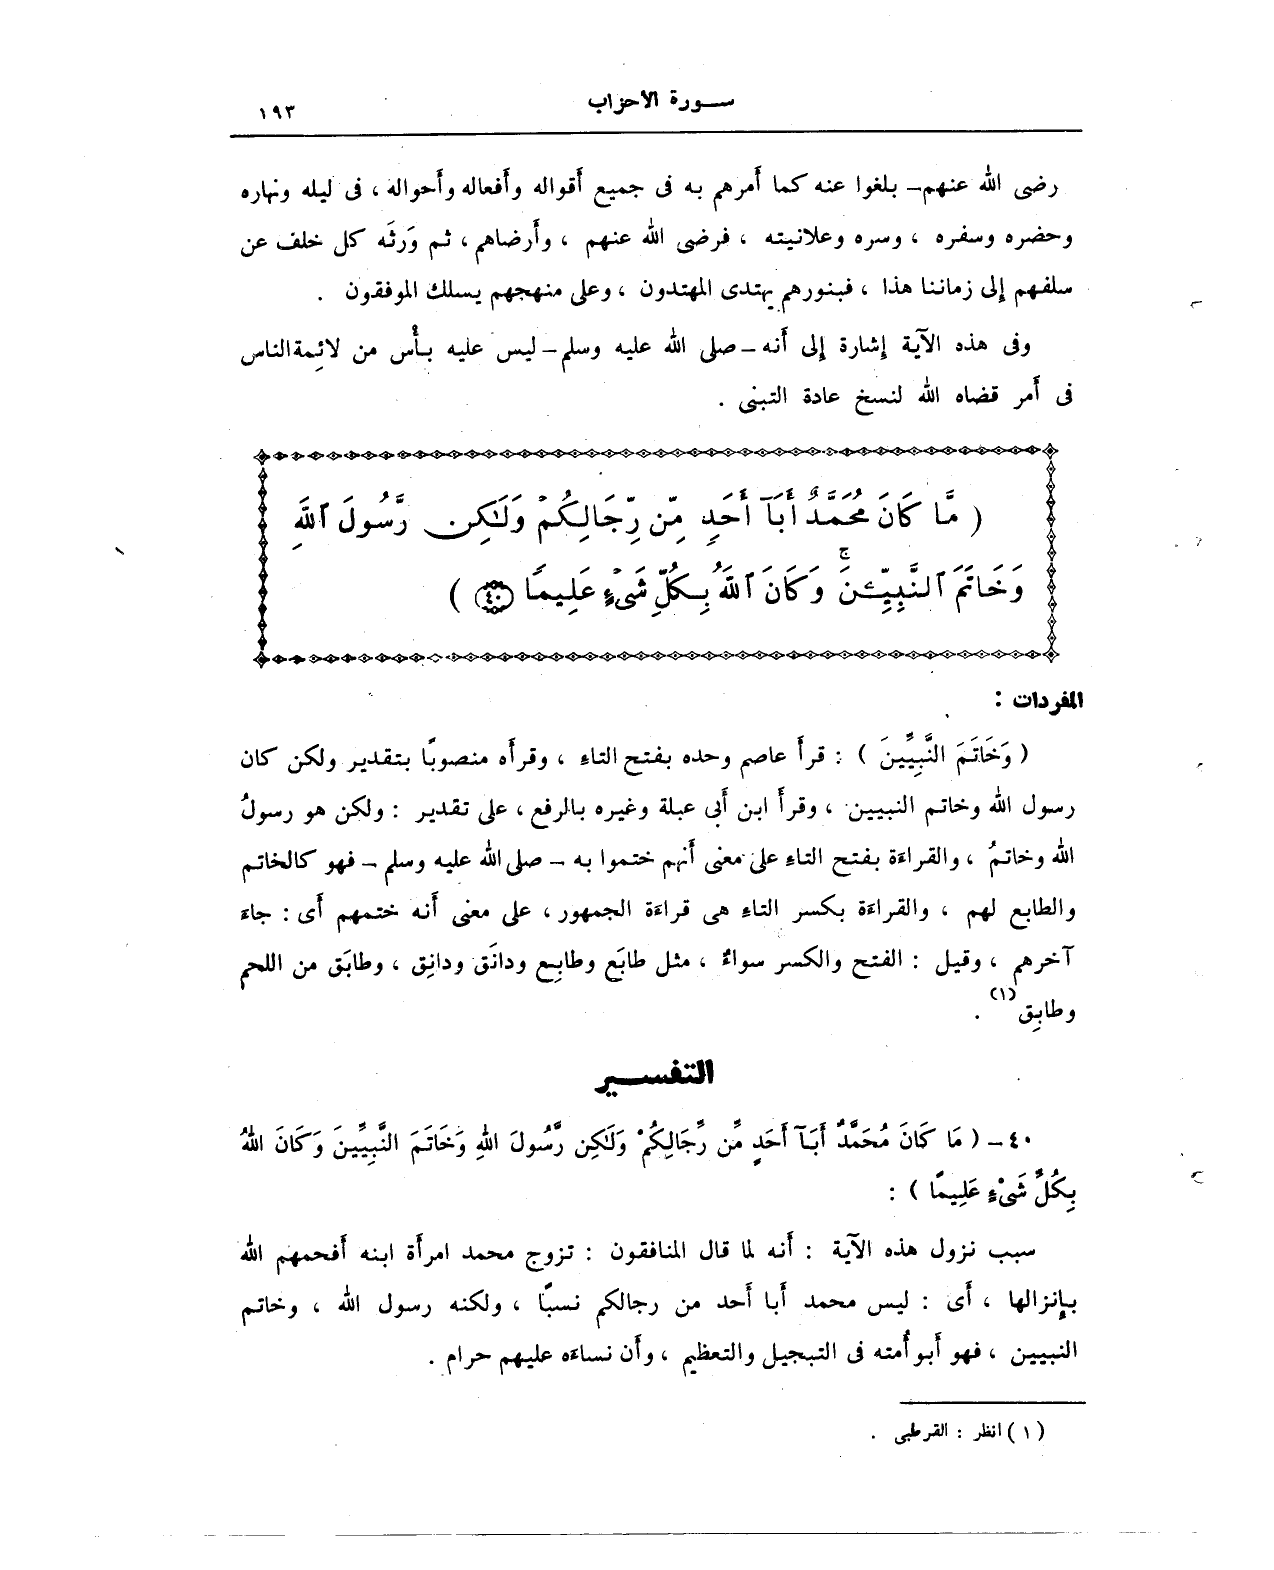 سورة الاحزاب
١٩٣
رضى الله عنهم – بلغوا عنه كما أمرهم به فى جميع أقواله وأفعاله وأحواله ، فى ليله ونهاره
وحضره وسفره ، وسره وعلانيته ، فرضى الله عنهم ، وأرضاهم ، ثم وَرثَه كل خلف عن
سلفهم إلى زماننا هذا ، فبنورهم يهتدى المهتدون ، وعلى منهجهم يسلك الموفقون .
وفى هذه الآية إشارة إلى أنه – صلى الله عليه وسلم – ليس عليه بأْس من لائِمة الناس
فى أمر قضاه الله لنسخ عادة التبنى .
( مَّا كَانَ مُحَمَّدٌ أَبَآ أَحَدٍ مِّن رِّجَالِكُمْ وَلَٰكِن رَّسُولَ ٱللَّهِ
وَخَاتَمَ ٱلنَّبِيِّـۧنَ ۗ وَكَانَ ٱللَّهُ بِكُلِّ شَىْءٍ عَلِيمًا ٤٠ )
المفردات :
( وَخَاتَمَ النَّبِيِّينَ ) : قرأ عاصم وحده بفتح التاء ، وقرأه منصوبًا بتقدير ولكن كان
رسول الله وخاتم النبيين ، وقرأ ابن أبى عبلة وغيره بالرفع ، على تقدير : ولكن هو رسولُ
الله وخاتمُ ، والقراءة بفتح التاء على معنى أنهم ختموا به – صلى الله عليه وسلم – فهو كالخاتم
والطابع لهم ، والقراءة بكسر التاء هى قراءة الجمهور ، على معنى أنه ختمهم أى : جاء
آخرهم ، وقيل : الفتح والكسر سواءٌ ، مثل طابَع وطابِع ودانَق ودانِق ، وطابَق من اللحم
وطابِق (١) .
التفسير
٤٠ – ( مَا كَانَ مُحَمَّدٌ أَبَآ أَحَدٍ مِّن رِّجَالِكُمْ وَلَٰكِن رَّسُولَ اللهِ وَخَاتَمَ النَّبِيِّينَ وَكَانَ اللهُ
بِكُلِّ شَىْءٍ عَلِيمًا ) :
سبب نزول هذه الآية : أنه لما قال المنافقون : تزوج محمد امرأة ابنه أفحمهم الله
بإنزالها ، أى : ليس محمد أبا أحد من رجالكم نسبًا ، ولكنه رسول الله ، وخاتم
النبيين ، فهو أبو أُمته فى التبجيل والتعظيم ، وأن نساءه عليهم حرام .
( ١ ) انظر : القرطبى .